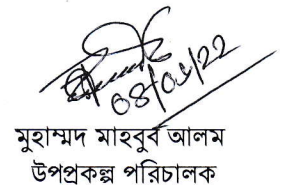 ০৪/০৬/২২
মুহাম্মদ মাহবুব আলম
উপপ্রকল্প পরিচালক